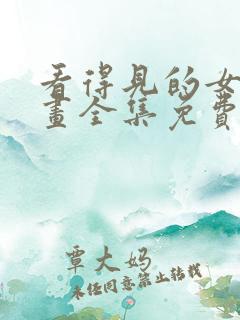 看得見的女
畫全集免費
覃大妈
未经同意禁止转载